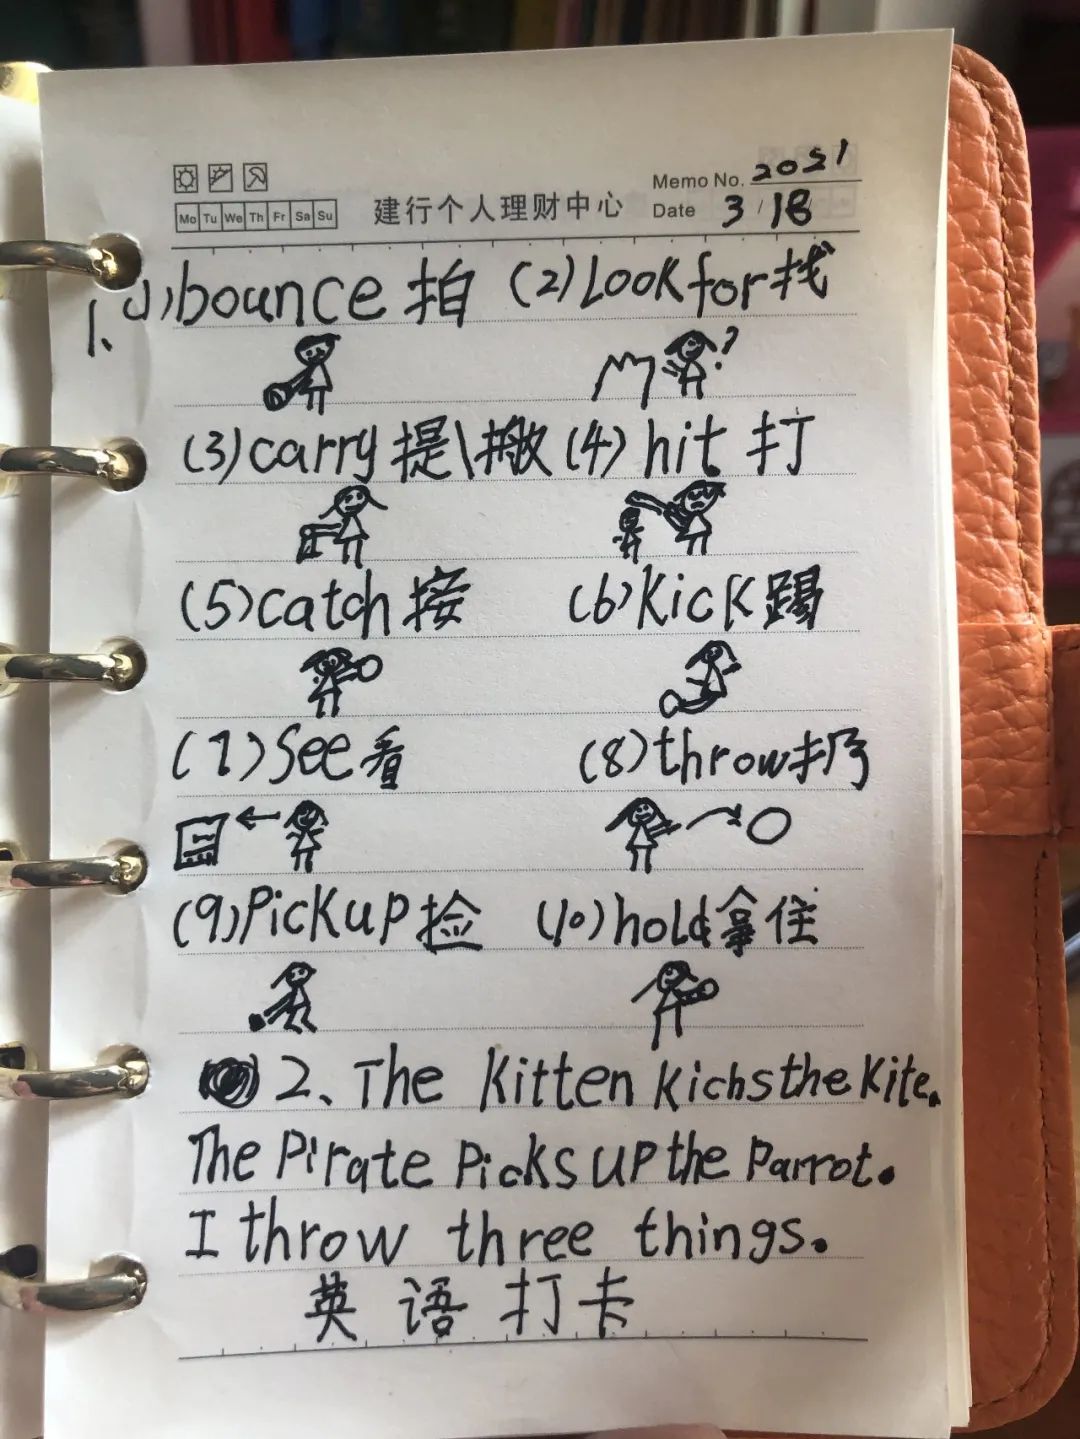 建行个人理财中心
Memo No. 2021
Mo Tu We Th Fr Sa Su
Date 3/18
1、(1)bounce 拍 (2)Look for 找
?
(3)carry 提\搬 (4)hit 打
(5)catch 接 (6)Kick 踢
(7)See 看 (8)throw 扔
(9)Pick up 捡 (10)hold 拿住
2、The Kitten Kichs the Kite.
The Pirate Picks up the Parrot.
I throw three things.
英语打卡